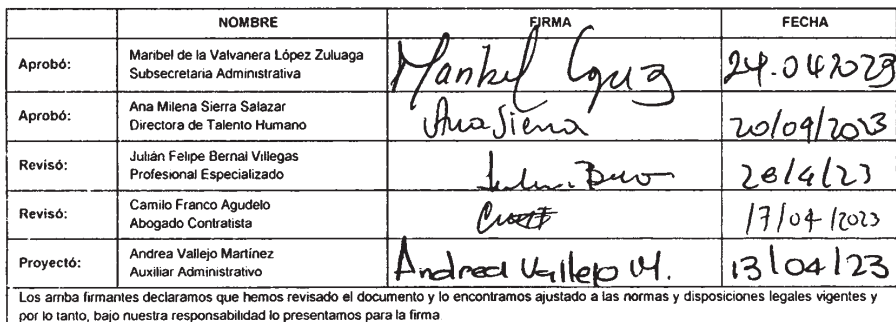 NOMBRE FIRMA FECHA
Aprobó: Maribel de la Valvanera López Zuluaga
Subsecretaria Administrativa Maribel López 24.04 2023
Aprobó: Ana Milena Sierra Salazar
Directora de Talento Humano Ana Sierra 20/04/2023
Revisó: Julián Felipe Bernal Villegas
Profesional Especializado 20/4/23
Revisó: Camilo Franco Agudelo
Abogado Contratista 17/04/2023
Proyectó: Andrea Vallejo Martínez
Auxiliar Administrativo Andrea Vallejo M. 13/04/23
Los arriba firmantes declaramos que hemos revisado el documento y lo encontramos ajustado a las normas y disposiciones legales vigentes y
por lo tanto, bajo nuestra responsabilidad lo presentamos para la firma